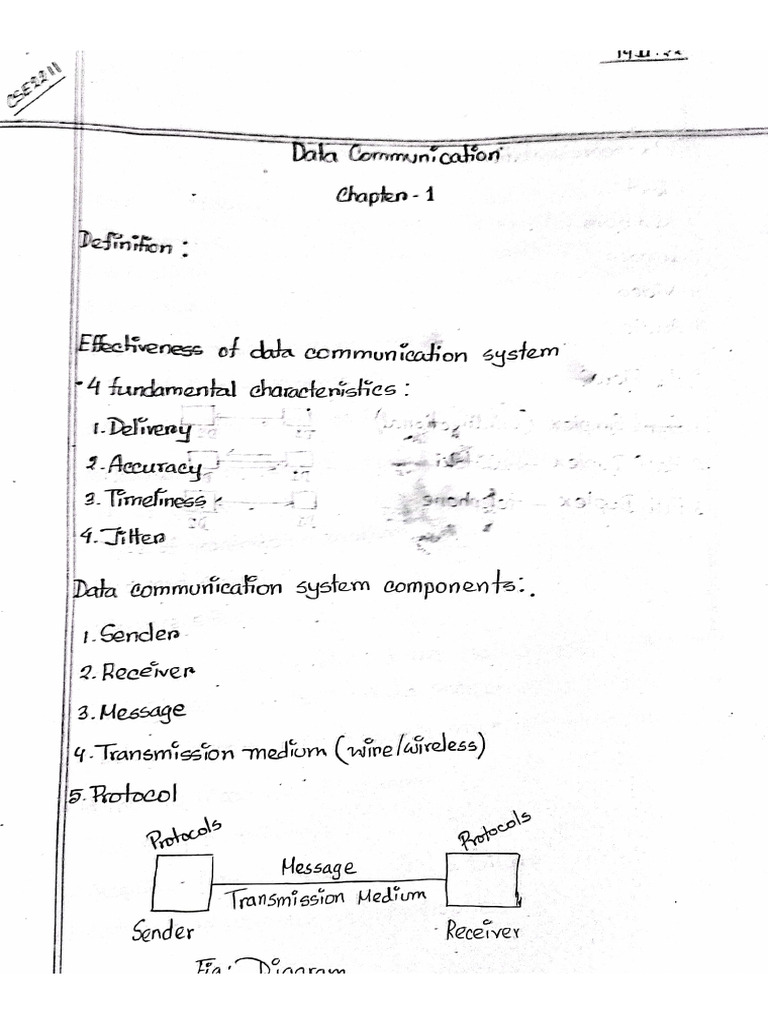 CSE2211
Data Communication
Chapter - 1
Definition :
Effectiveness of data communication system
- 4 fundamental characteristics :
1. Delivery
2. Accuracy
3. Timeliness
4. Jitter
Data communication system components:.
1. Sender
2. Receiver
3. Message
4. Transmission medium (wire/wireless)
5. Protocol
Protocols
Protocols
Message
Transmission Medium
Sender
Receiver
Fig: Diagram